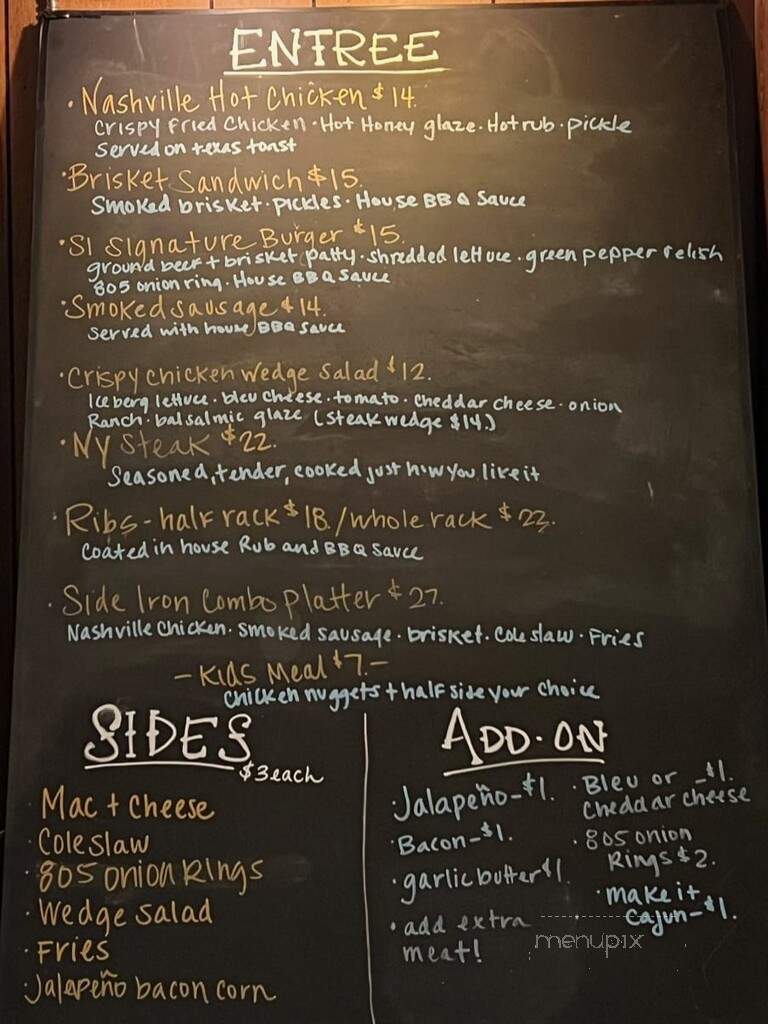 ENTREE
• Nashville Hot Chicken $14.
Crispy Fried Chicken • Hot Honey glaze • Hot rub • pickle
Served on texas toast
• Brisket Sandwich $15.
Smoked brisket • pickles • House BBQ Sauce
• SI Signature Burger $15.
ground beef + brisket patty • shredded lettuce • green pepper relish
805 onion ring • House BBQ Sauce
• Smoked sausage $14.
Served with house BBQ Sauce
• Crispy chicken wedge Salad $12.
Iceberg lettuce • bleu cheese • tomato • cheddar cheese • onion
Ranch • balsalmic glaze (steak wedge $14.)
• NY Steak $22.
Seasoned, tender, cooked just how you like it
• Ribs - half rack $18. / whole rack $23.
Coated in house Rub and BBQ Sauce
• Side Iron Combo Platter $27.
Nashville Chicken • Smoked sausage • brisket • Coleslaw • Fries
- Kids Meal $7. -
Chicken nuggets + half side your choice
SIDES
$3 each
• Mac + Cheese
• Coleslaw
• 805 onion Rings
• Wedge Salad
• Fries
• Jalapeño bacon corn
ADD•ON
• Jalapeño - $1.
• Bacon - $1.
• garlic butter $1.
• add extra
meat!
• Bleu or - $1.
Cheddar cheese
• 805 onion
Rings $2.
• make it
Cajun - $1.
menupix